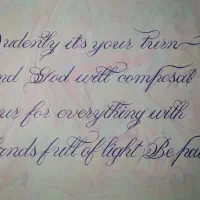 udently it's your turn
nd God will compesat
our for everything with
hands full of light Be pa